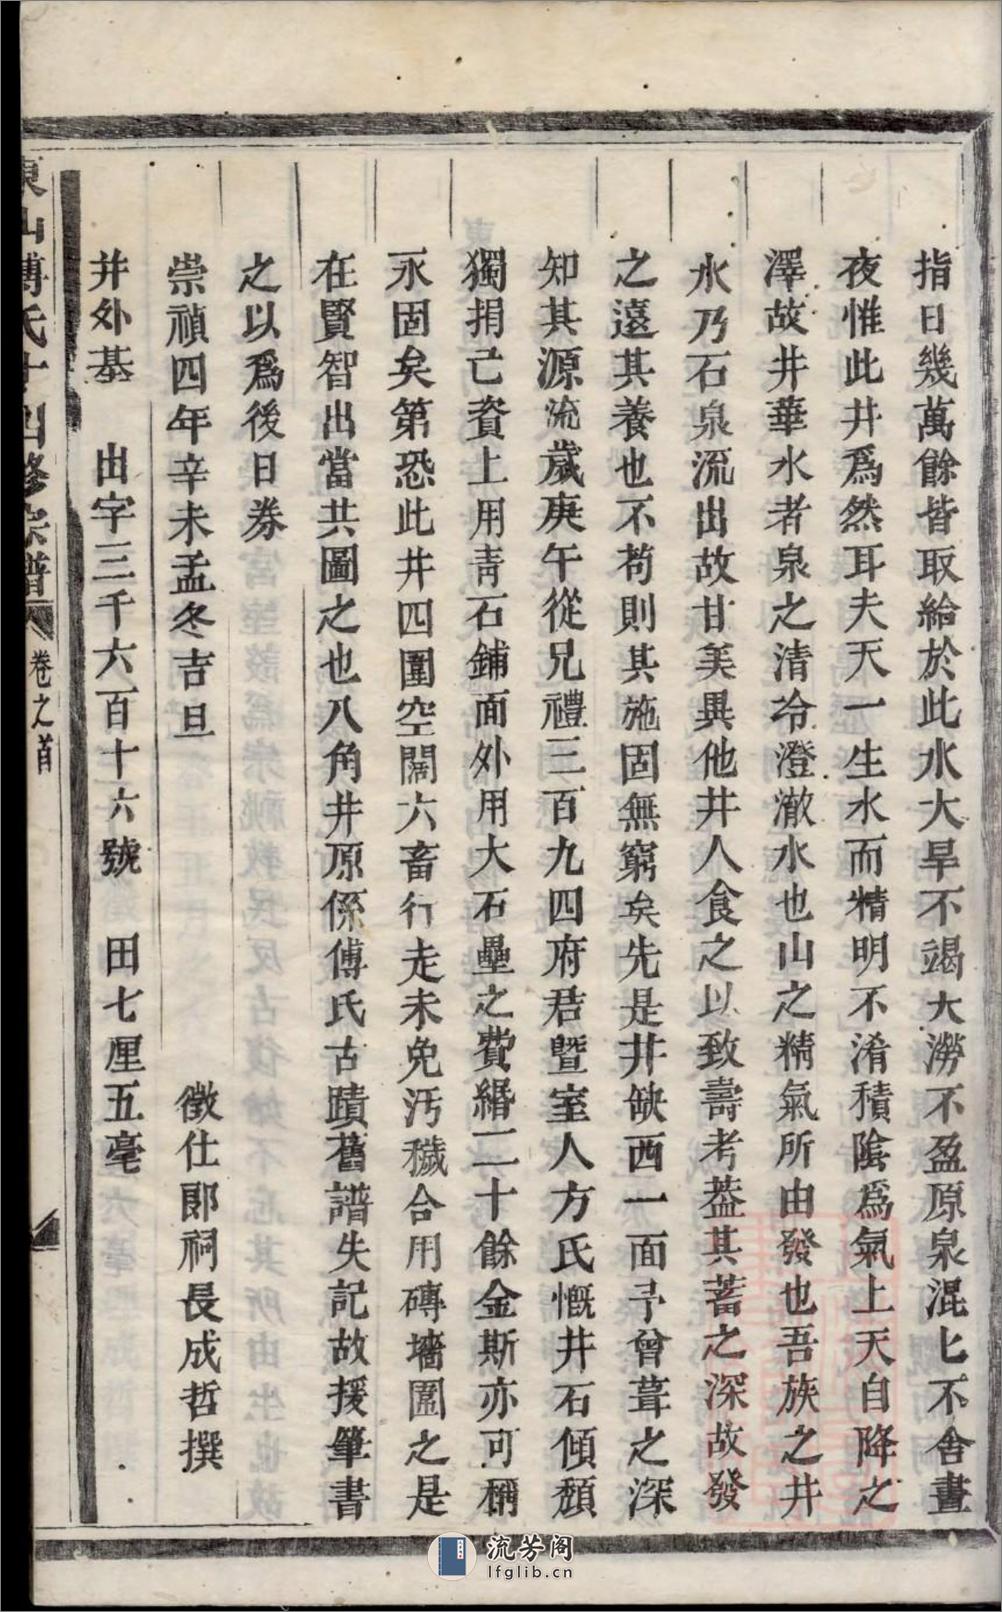 指日幾萬餘皆取給於此水大旱不竭大澇不盈原泉混匕不舍晝
夜惟此井爲然耳夫天一生水而精明不淆積陰爲氣上天自降之
澤故井華水者泉之清冷澄澈水也山之精氣所由發也吾族之井
水乃石泉流出故甘美異他井人食之以致壽考葢其蓄之深故發
之遠其養也不苟則其施固無窮矣先是井缺西一面予曾葺之深
知其源流歲庚午從兄禮三百九四府君暨室人方氏慨井石傾頹
獨捐己資上用青石鋪面外用大石壘之費緡二十餘金斯亦可稱
永固矣第恐此井四圍空闊六畜行走未免汚穢合用磚墻圍之是
在賢智出當共圖之也八角井原係傅氏古蹟舊譜失記故援筆書
之以爲後日券
崇禎四年辛未孟冬吉旦　徵仕郎祠長成哲撰
井外基　出字三千六百十六號　田七厘五毫
東山傅氏十四修宗譜　卷之首
流芳阁
lfglib.cn